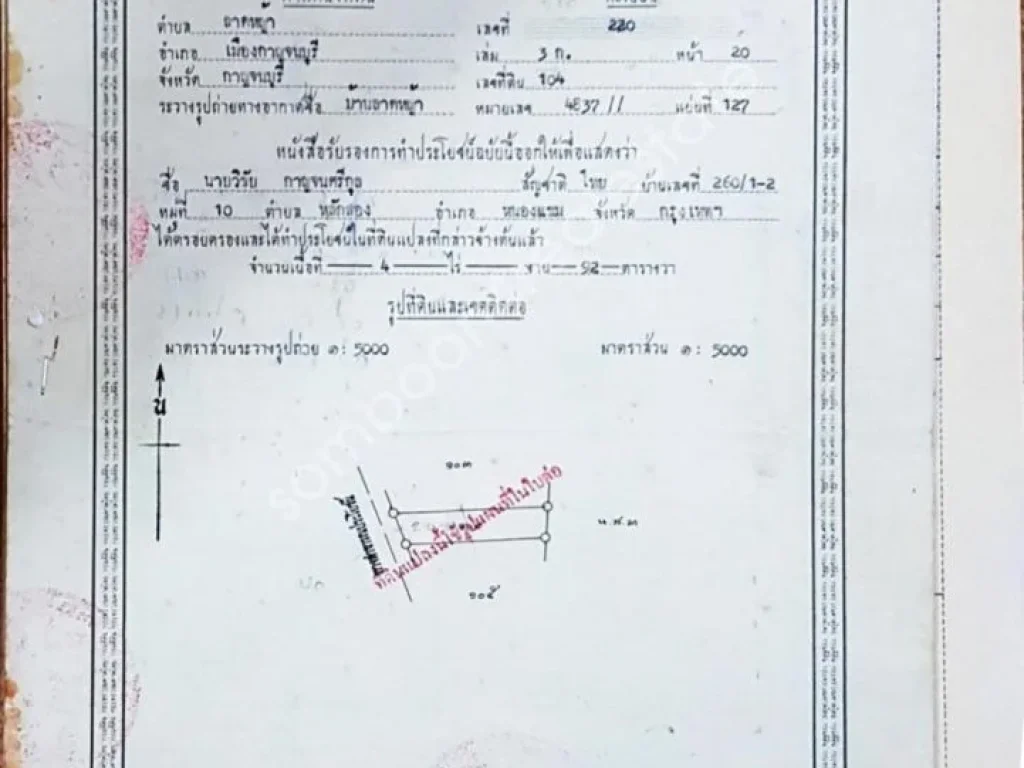 ตำบล ลาดหญ้า เลขที่ 220
อำเภอ เมืองกาญจนบุรี เล่ม 3 ก. หน้า 20
จังหวัด กาญจนบุรี เลขที่ดิน 104
ระวางรูปถ่ายทางอากาศชื่อ บ้านลาดหญ้า หมายเลข 4837 // แผ่นที่ 127
หนังสือรับรองการทำประโยชน์ฉบับนี้ออกให้เพื่อแสดงว่า
ชื่อ นายวิรัย กาญจนศรีกุล สัญชาติ ไทย บ้านเลขที่ 260/1-2
หมู่ที่ 10 ตำบล หลักสอง อำเภอ หนองแขม จังหวัด กรุงเทพฯ
ได้ครอบครองและได้ทำประโยชน์ในที่ดินแปลงที่กล่าวข้างต้นแล้ว
จำนวนเนื้อที่ 4 ไร่ งาน 92 ตารางวา
รูปที่ดินและเขตติดต่อ
มาตราส่วนระวางรูปถ่าย ๑ : 5000 มาตราส่วน ๑ : 5000
น
๑๐๓
ที่ดินแปลงนี้ใช้รูปแผนที่ในใบต่อ
น.ส.๓
๑๐๕
somboon